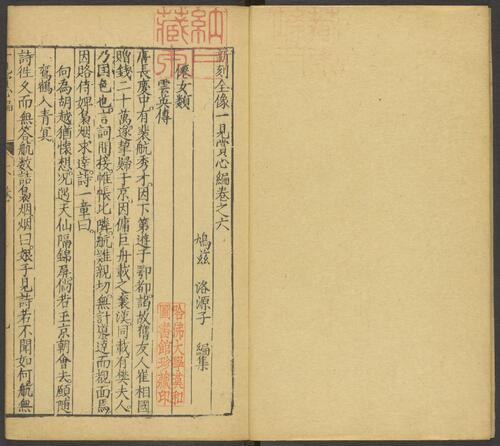 新刻全像一見賞心編卷之六
鳩茲 洛源子 編集
僊女類
雲英傳
唐長慶中有裴航秀才因下第遊于鄂都謁故舊友人崔相國
贈錢二十萬遂挈歸于京因傭巨舟載之襄漢同載有樊夫人
乃国色也言詞間接帷帳比隣航雖親切無計導達而覿面焉
因賂侍婢裊烟求達詩一章曰
向為胡越猶懷想况遇天仙隔錦屏倘若玉京朝會去願隨
鸞鶴入青冥
詩徃久而無荅航数詰裊烟烟曰娘子見詩若不聞如何航無
哈佛大學漢和
圖書館珍藏印